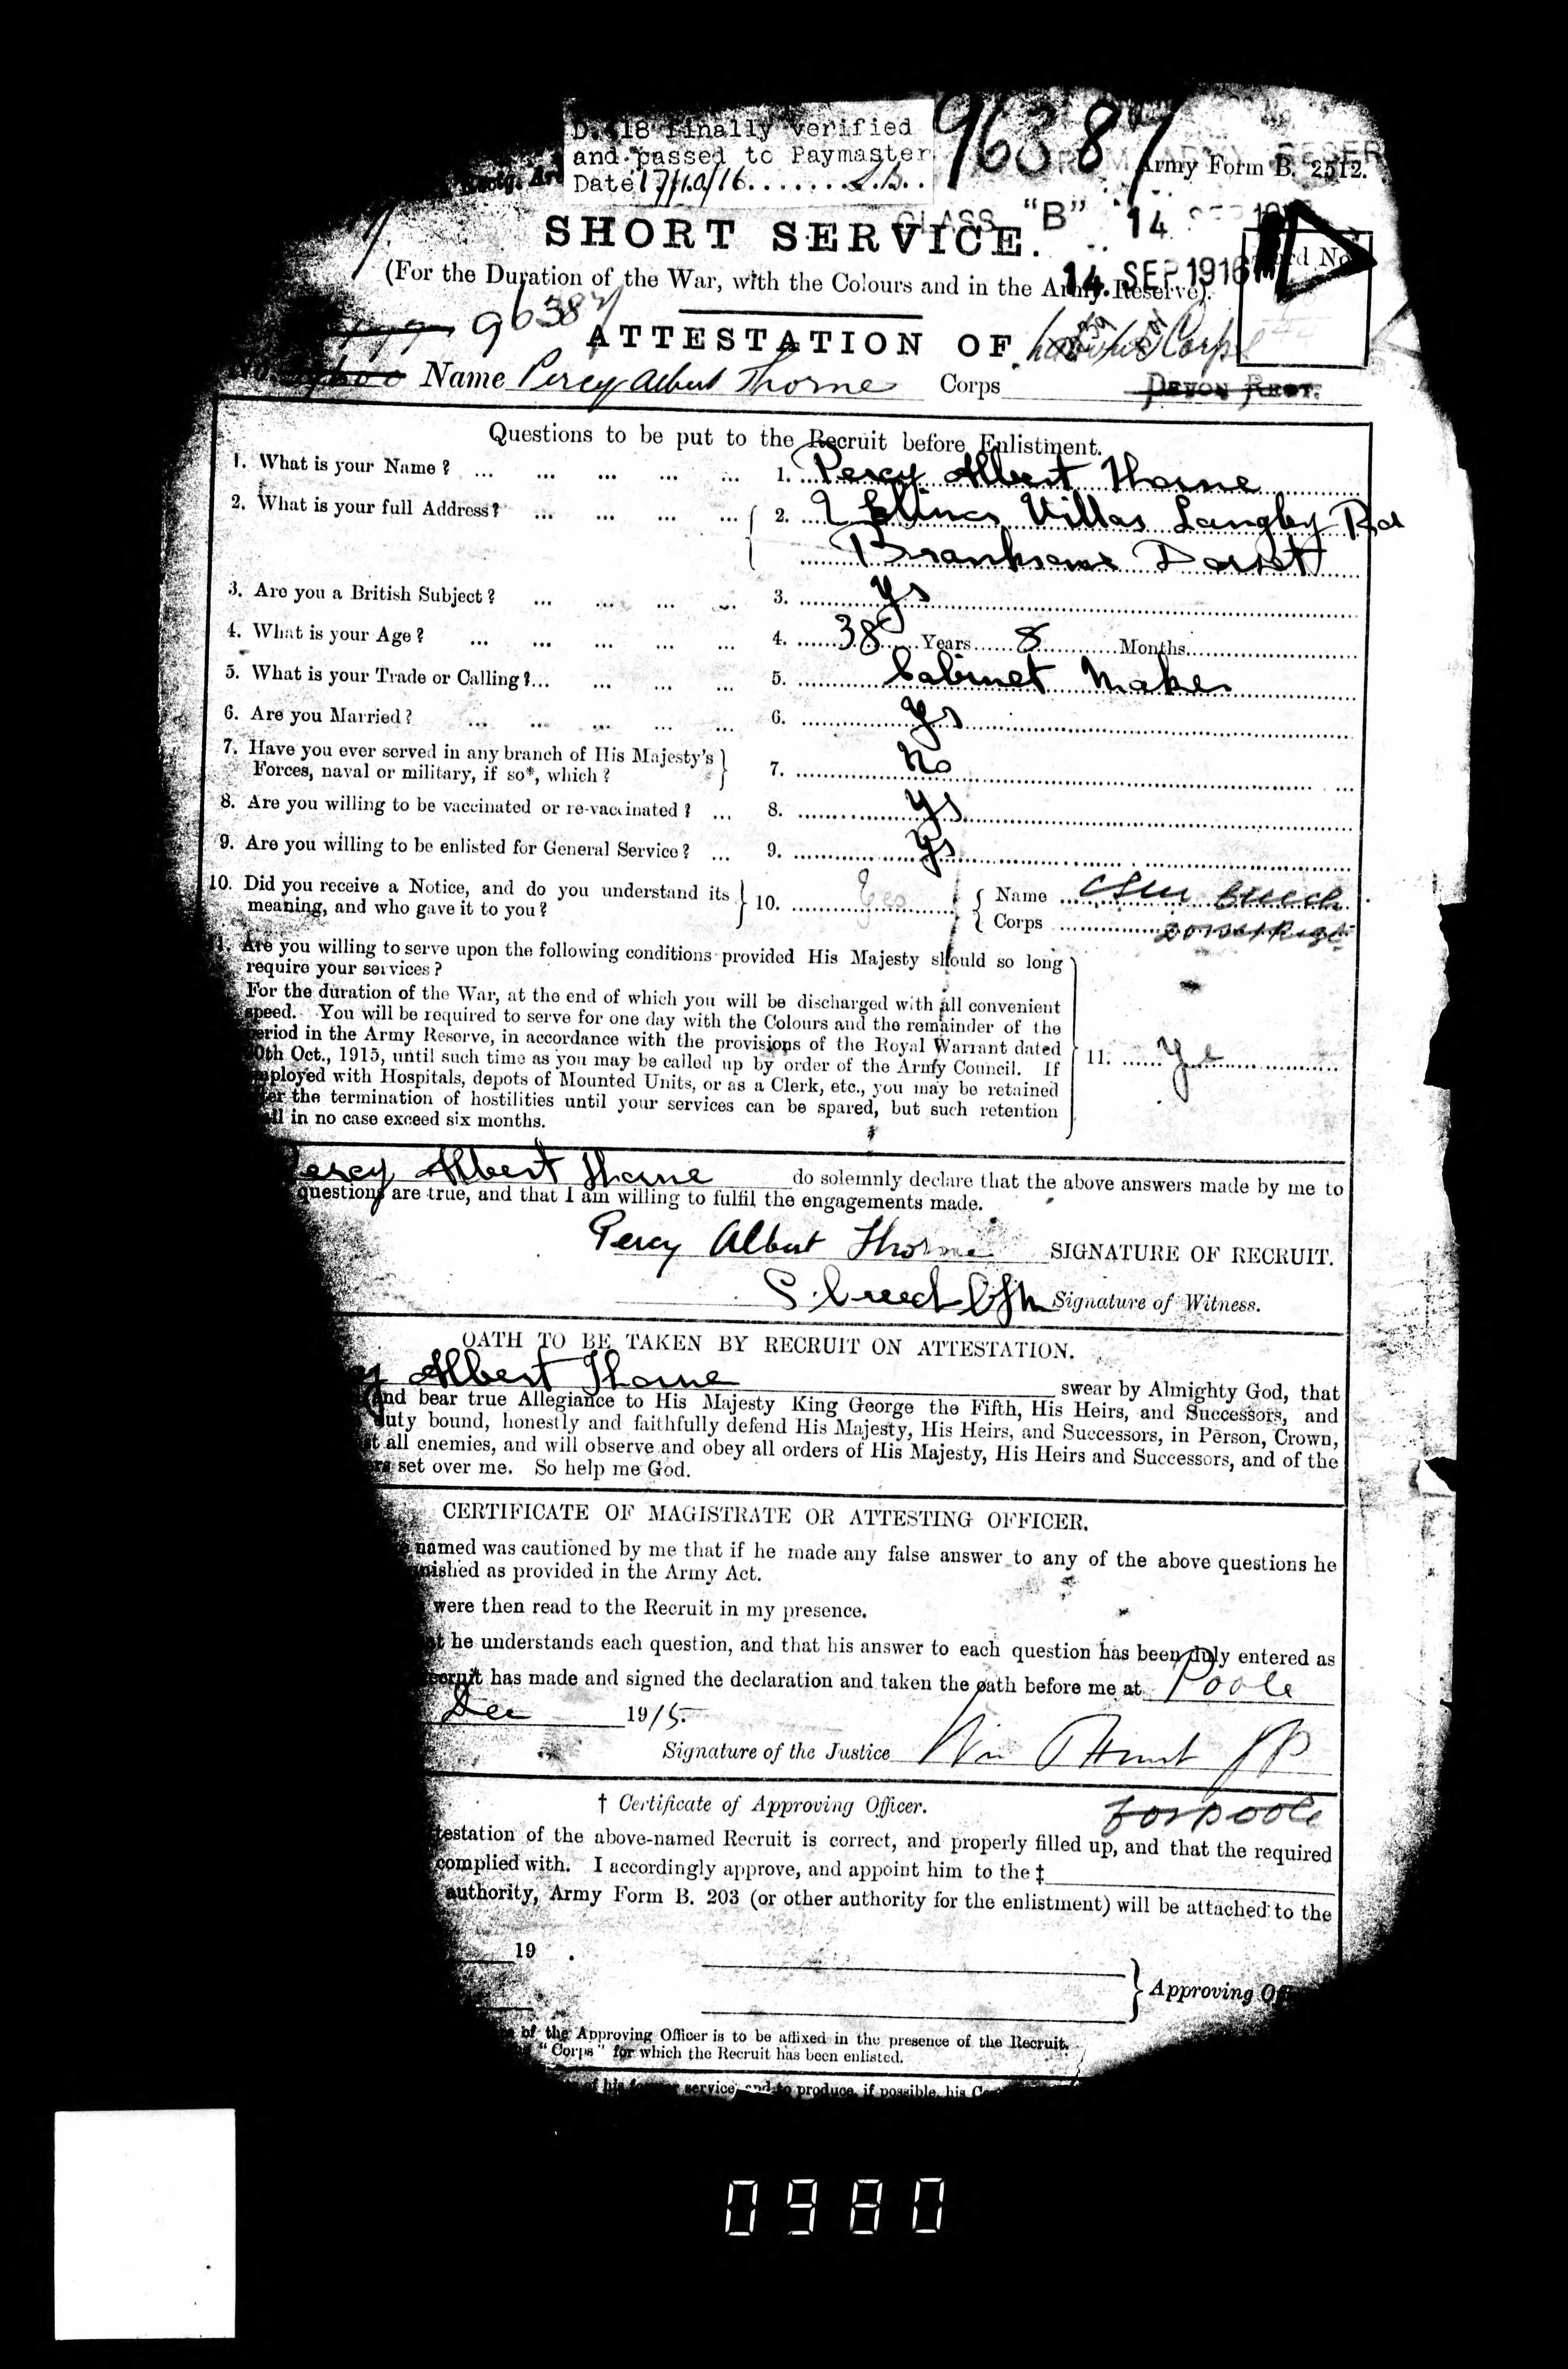 D. 418 finally verified
and passed to Paymaster
Date 17/10/16 ........ S.B.
96387
Army Form B. 2512.
CLASS "B" 14 SEP 1916
SHORT SERVICE.
14. SEP 1916
(For the Duration of the War, with the Colours and in the Army Reserve).
96387
ATTESTATION OF
Corps
Name Percy Albert Thorne Corps DEVON REGT.
Questions to be put to the Recruit before Enlistment.
1. What is your Name? ... ... ... ... ... 1. Percy Albert Thorne
2. What is your full Address? ... ... ... ... 2. 2 Villas Langley Rd
Branksome Dorset
3. Are you a British Subject? ... ... ... ... 3. Yes
4. What is your Age? ... ... ... ... ... 4. 38 Years 8 Months
5. What is your Trade or Calling?... ... ... ... 5. Cabinet Maker
6. Are you Married? ... ... ... ... 6. Yes
7. Have you ever served in any branch of His Majesty's
Forces, naval or military, if so*, which? 7. No
8. Are you willing to be vaccinated or re-vaccinated? ... 8. Yes
9. Are you willing to be enlisted for General Service? ... 9. Yes
10. Did you receive a Notice, and do you understand its
meaning, and who gave it to you? 10. Yes Name CSM Creech
Corps Dorset Regt
11. Are you willing to serve upon the following conditions provided His Majesty should so long
require your services?
For the duration of the War, at the end of which you will be discharged with all convenient
speed. You will be required to serve for one day with the Colours and the remainder of the
period in the Army Reserve, in accordance with the provisions of the Royal Warrant dated
20th Oct., 1915, until such time as you may be called up by order of the Army Council. If
employed with Hospitals, depots of Mounted Units, or as a Clerk, etc., you may be retained
after the termination of hostilities until your services can be spared, but such retention
shall in no case exceed six months.
11. Yes
Percy Albert Thorne do solemnly declare that the above answers made by me to
questions are true, and that I am willing to fulfil the engagements made.
Percy Albert Thorne SIGNATURE OF RECRUIT.
S. Creech CSM Signature of Witness.
OATH TO BE TAKEN BY RECRUIT ON ATTESTATION.
Albert Thorne swear by Almighty God, that
and bear true Allegiance to His Majesty King George the Fifth, His Heirs, and Successors, and
duty bound, honestly and faithfully defend His Majesty, His Heirs, and Successors, in Person, Crown,
all enemies, and will observe and obey all orders of His Majesty, His Heirs and Successors, and of the
set over me. So help me God.
CERTIFICATE OF MAGISTRATE OR ATTESTING OFFICER.
named was cautioned by me that if he made any false answer to any of the above questions he
punished as provided in the Army Act.
were then read to the Recruit in my presence.
he understands each question, and that his answer to each question has been duly entered as
Recruit has made and signed the declaration and taken the oath before me at Poole
Dec 1915.
Signature of the Justice Hunt JP
for Poole
† Certificate of Approving Officer.
testation of the above-named Recruit is correct, and properly filled up, and that the required
complied with. I accordingly approve, and appoint him to the ‡
authority, Army Form B. 203 (or other authority for the enlistment) will be attached to the
19 .
Approving
of the Approving Officer is to be affixed in the presence of the Recruit.
"Corps" for which the Recruit has been enlisted.
of his former service, and to produce, if possible, his
0980